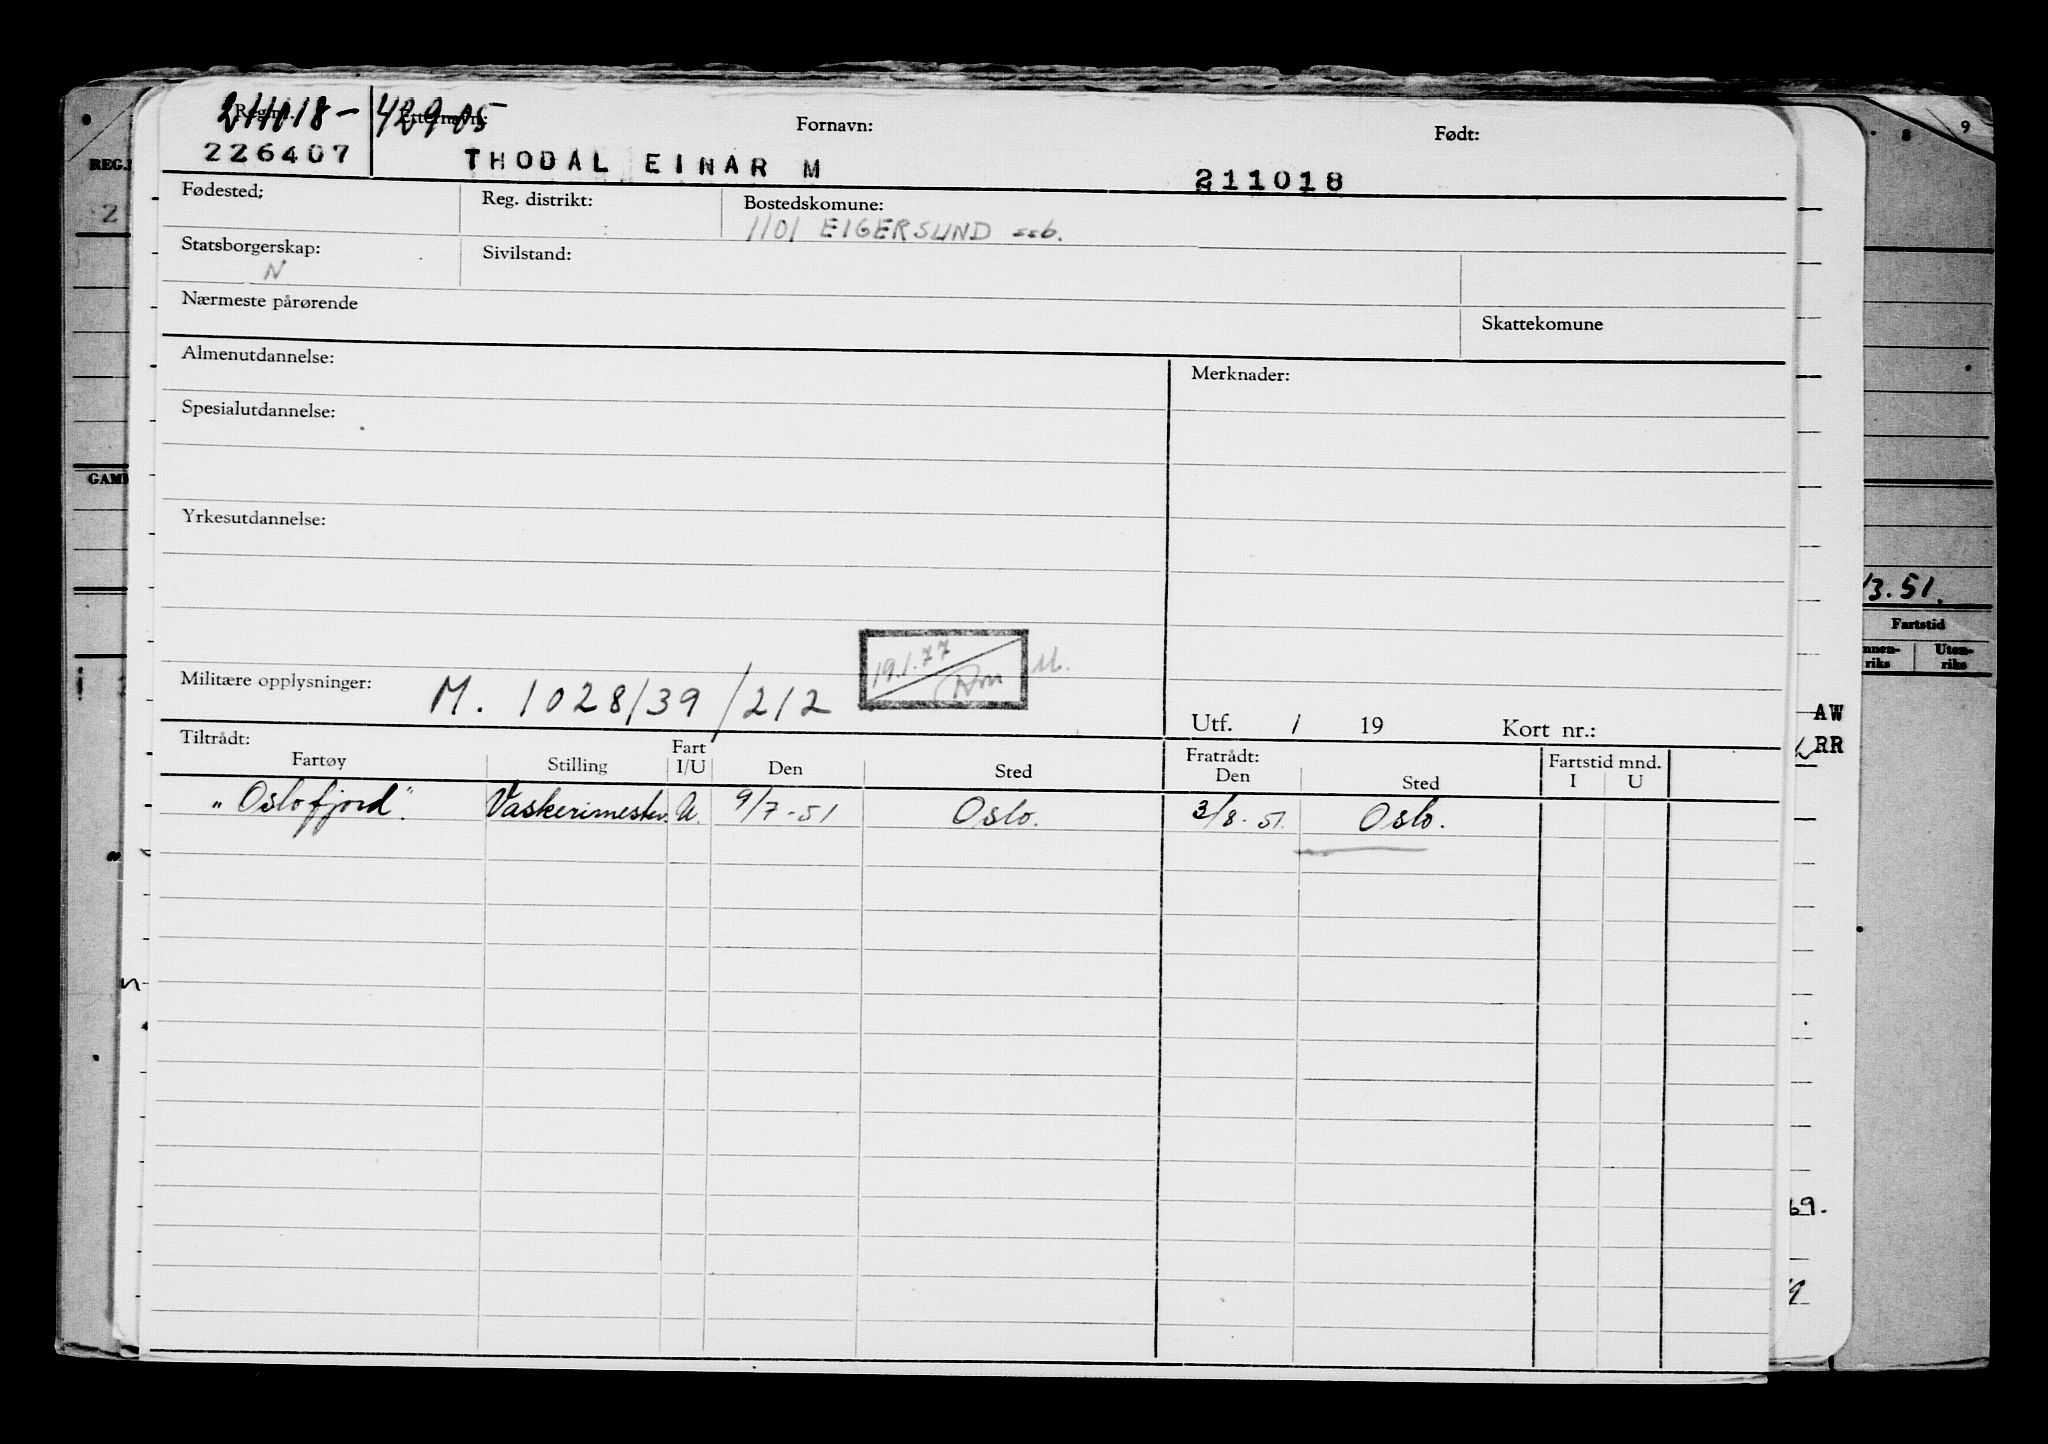 211018-42905
Reg.nr. Etternavn: Fornavn: Født:
226407 THODAL EINAR M 211018
Fødested; Reg. distrikt: Bostedskomune:
1101 EIGERSUND ssb.
Statsborgerskap: Sivilstand:
N
Nærmeste pårørende
Skattekomune
Almenutdannelse: Merknader:
Spesialutdannelse:
Yrkesutdannelse:
19.1.77
Militære opplysninger: M. 1028/39/212
Utf. / 19 Kort nr.:
Tiltrådt: Fratrådt: Fartstid mnd.
Fartøy Stilling Fart I/U Den Sted Den Sted I U
"Oslofjord". Vaskerimester. U. 9/7-51 Oslo. 3/8-51. Oslo.
REG.
2
GAM
8 9
/3.51.
Fartstid
nnen-riks Uten-riks
AW
RR
69.